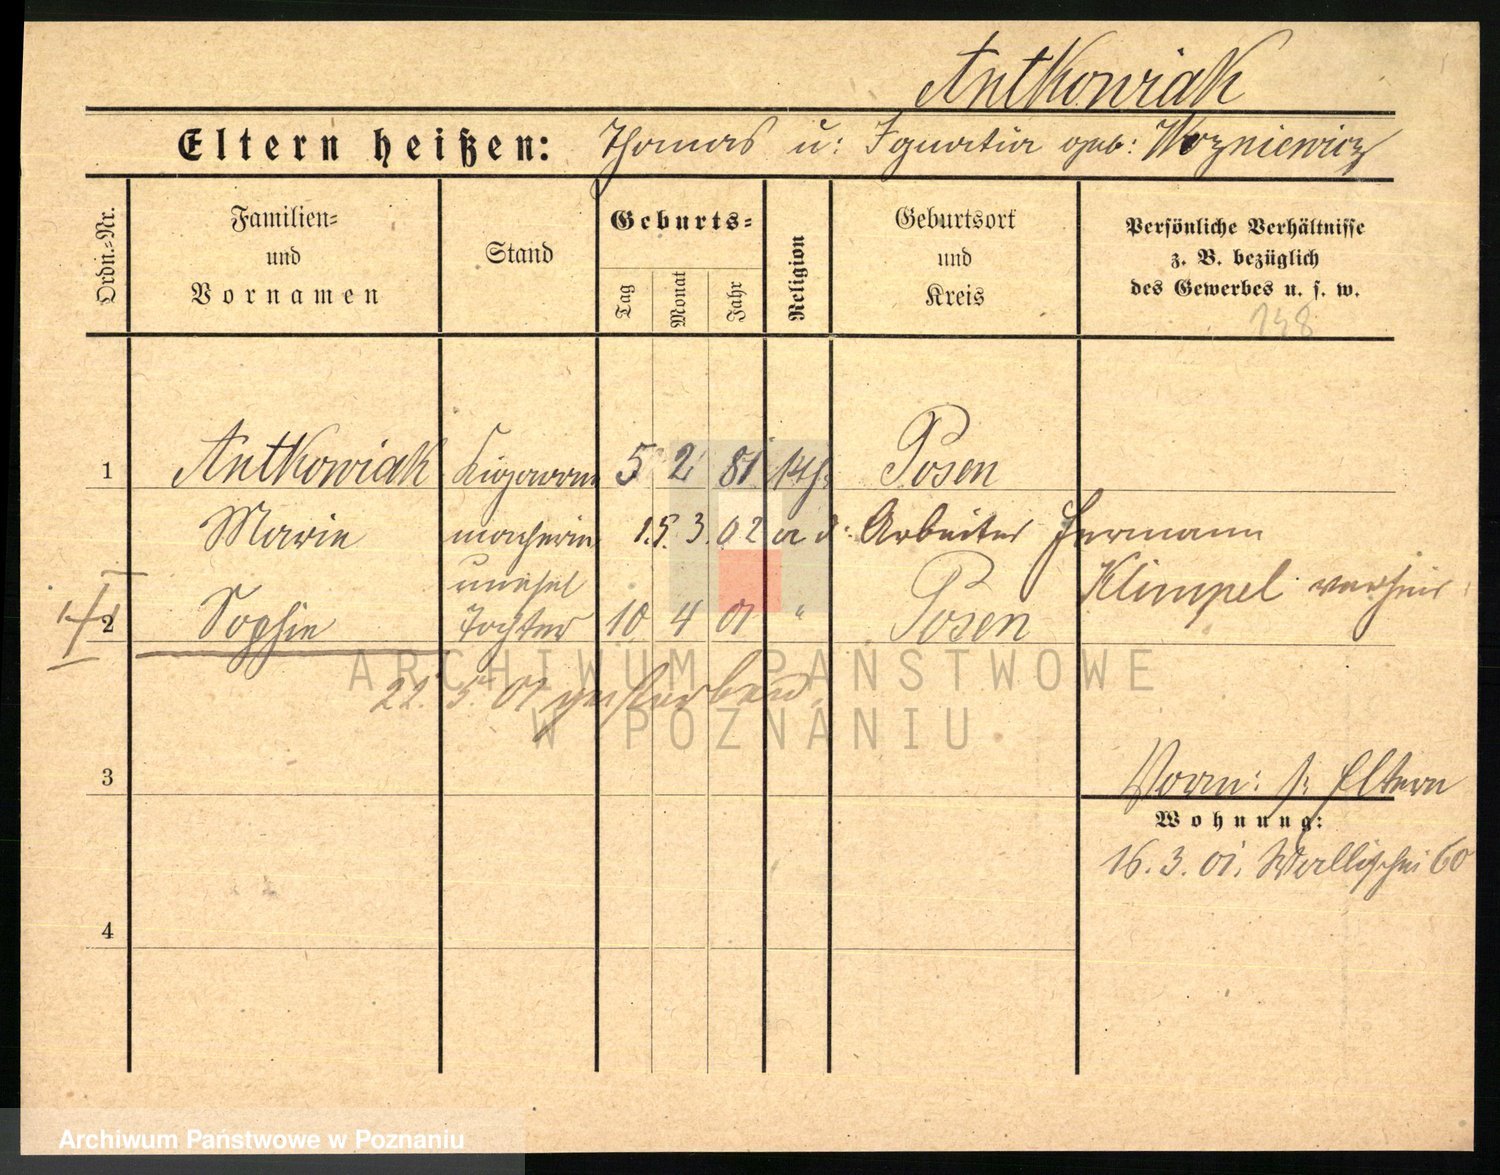 Antkowiak
Eltern heißen: Thomas u: Ignatia geb: Wozniewicz
Ordn.-Nr.
Familien-
und
Vornamen
Stand
Geburts-
Tag
Monat
Jahr
Religion
Geburtsort
und
Kreis
Persönliche Verhältnisse
z. B. bezüglich
des Gewerbes u. s. w.
138
1 Antkowiak Cigarren 5 2 81 kth. Posen
Marie macherin 15. 3. 02 a d. Arbeiter Hermann
unehel Klimpel verheir.
2 Sophie Tochter 10 4 01 " Posen
22. 5. 01 gestorben.
3
Vorm: s. Eltern
Wohnung:
16. 3. 01. Wallischei 60
4
ARCHIWUM PAŃSTWOWE
W POZNANIU
Archiwum Państwowe w Poznaniu